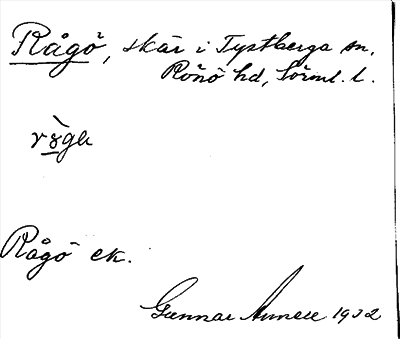 Rågö, skär i Tystberga sn,
Rönö hd, Sörml. l.
Rågö ek.
Gunnar 1932